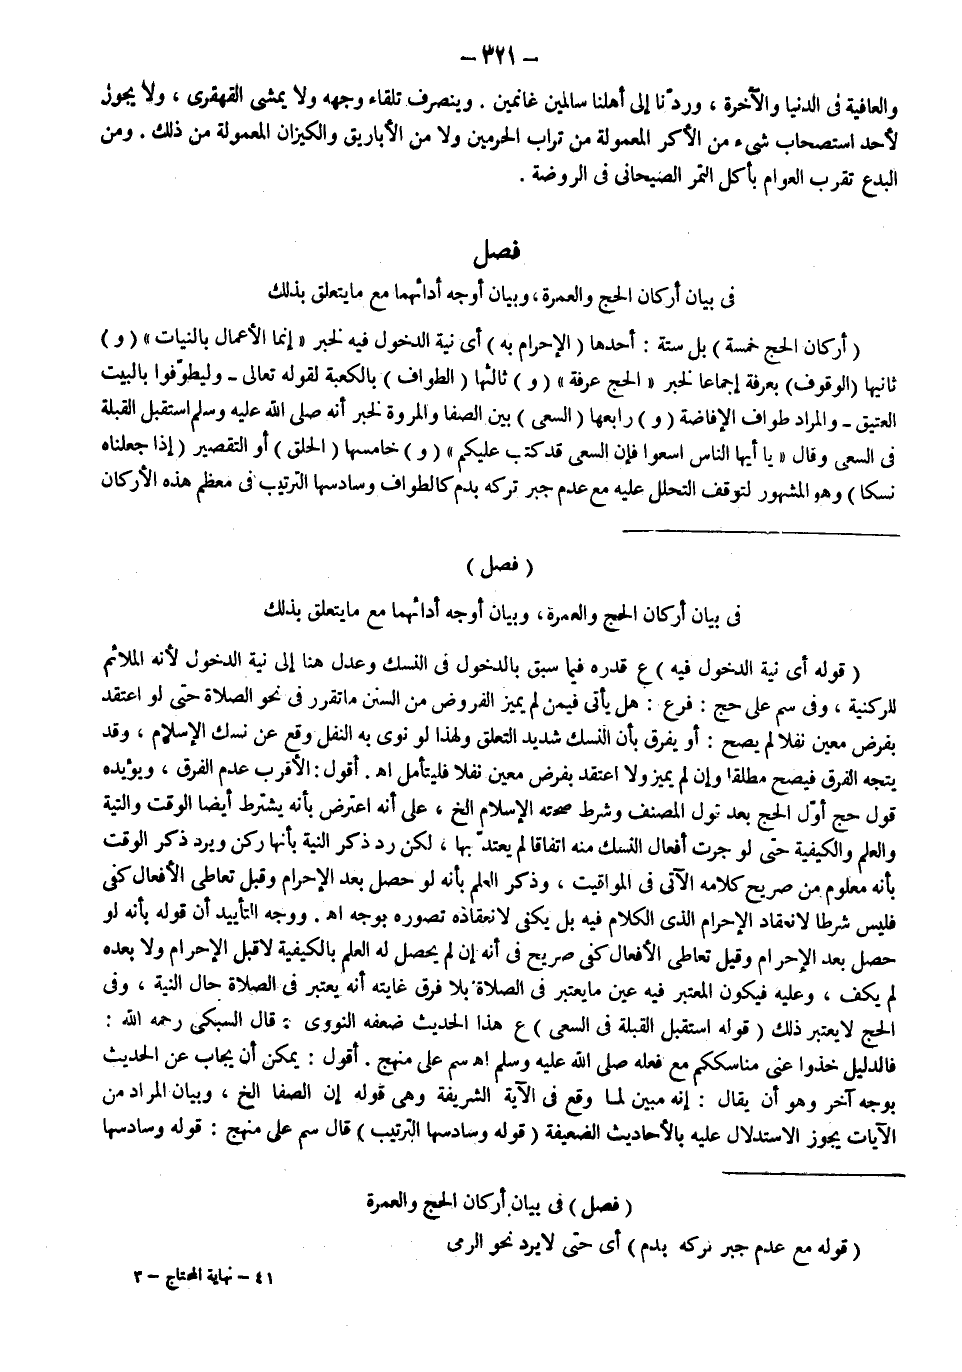 – ٣٢١ –
والعافية فى الدنيا والآخرة ، وردّنا إلى أهلنا سالمين غانمين . وينصرف تلقاء وجهه ولا يمشى القهقرى ، ولا يجوز
لأحد استصحاب شىء من الأكر المعمولة من تراب الحرمين ولا من الأباريق والكيزان المعمولة من ذلك . ومن
البدع تقرب العوام بأكل التمر الصيحانى فى الروضة .
فصل
فى بيان أركان الحج والعمرة ، وبيان أوجه أدائهما مع مايتعلق بذلك
( أركان الحج خمسة ) بل ستة : أحدها ( الإحرام به ) أى نية الدخول فيه لخبر « إنما الأعمال بالنيات » ( و )
ثانيها (الوقوف) بعرفة إجماعا لخبر « الحج عرفة » ( و ) ثالثها ( الطواف ) بالكعبة لقوله تعالى ـ وليطوّفوا بالبيت
العتيق ـ والمراد طواف الإفاضة ( و ) رابعها ( السعى ) بين الصفا والمروة لخبر أنه صلى الله عليه وسلم استقبل القبلة
فى السعى وقال « يا أيها الناس اسعوا فإن السعى قد كتب عليكم » ( و ) خامسها ( الحلق ) أو التقصير ( إذا جعلناه
نسكا ) وهو المشهور لتوقف التحلل عليه مع عدم جبر تركه بدم كالطواف وسادسها الترتيب فى معظم هذه الأركان
( فصل )
فى بيان أركان الحج والعمرة ، وبيان أوجه أدائهما مع مايتعلق بذلك
( قوله أى نية الدخول فيه ) ع قدره فيما سبق بالدخول فى النسك وعدل هنا إلى نية الدخول لأنه الملائم
للركنية ، وفى سم على حج : فرع : هل يأتى فيمن لم يميز الفروض من السنن ماتقرر فى نحو الصلاة حتى لو اعتقد
بفرض معين نفلا لم يصح : أو يفرق بأن النسك شديد التعلق ولهذا لو نوى به النفل وقع عن نسك الإسلام ، وقد
يتجه الفرق فيصح مطلقا وإن لم يميز ولا اعتقد بفرض معين نفلا فليتأمل اهـ . أقول : الأقرب عدم الفرق ، ويؤيده
قول حج أوّل الحج بعد تول المصنف وشرط صحته الإسلام الخ ، على أنه اعترض بأنه يشترط أيضا الوقت والنية
والعلم والكيفية حتى لو جرت أفعال النسك منه اتفاقا لم يعتدّ بها ، لكن رد ذكر النية بأنها ركن ويرد ذكر الوقت
بأنه معلوم من صريح كلامه الآتى فى المواقيت ، وذكر العلم بأنه لو حصل بعد الإحرام وقبل تعاطى الأفعال كفى
فليس شرطا لانعقاد الإحرام الذى الكلام فيه بل يكفى لانعقاده تصوره بوجه اهـ . ووجه التأييد أن قوله بأنه لو
حصل بعد الإحرام وقبل تعاطى الأفعال كفى صريح فى أنه إن لم يحصل له العلم بالكيفية لاقبل الإحرام ولا بعده
لم يكف ، وعليه فيكون المعتبر فيه عين مايعتبر فى الصلاة بلا فرق غايته أنه يعتبر فى الصلاة حال النية ، وفى
الحج لايعتبر ذلك ( قوله استقبل القبلة فى السعى ) ع هذا الحديث ضعفه النووى : قال السبكى رحمه الله :
فالدليل خذوا عنى مناسككم مع فعله صلى الله عليه وسلم اهـ سم على منهج . أقول : يمكن أن يجاب عن الحديث
بوجه آخر وهو أن يقال : إنه مبين لما وقع فى الآية الشريفة وهى قوله إن الصفا الخ ، وبيان المراد من
الآيات يجوز الاستدلال عليه بالأحاديث الضعيفة ( قوله وسادسها الترتيب ) قال سم على منهج : قوله وسادسها
( فصل ) فى بيان أركان الحج والعمرة
( قوله مع عدم جبر تركه بدم ) أى حتى لايرد نحو الرمى
٤١ – نهاية المحتاج – ٣